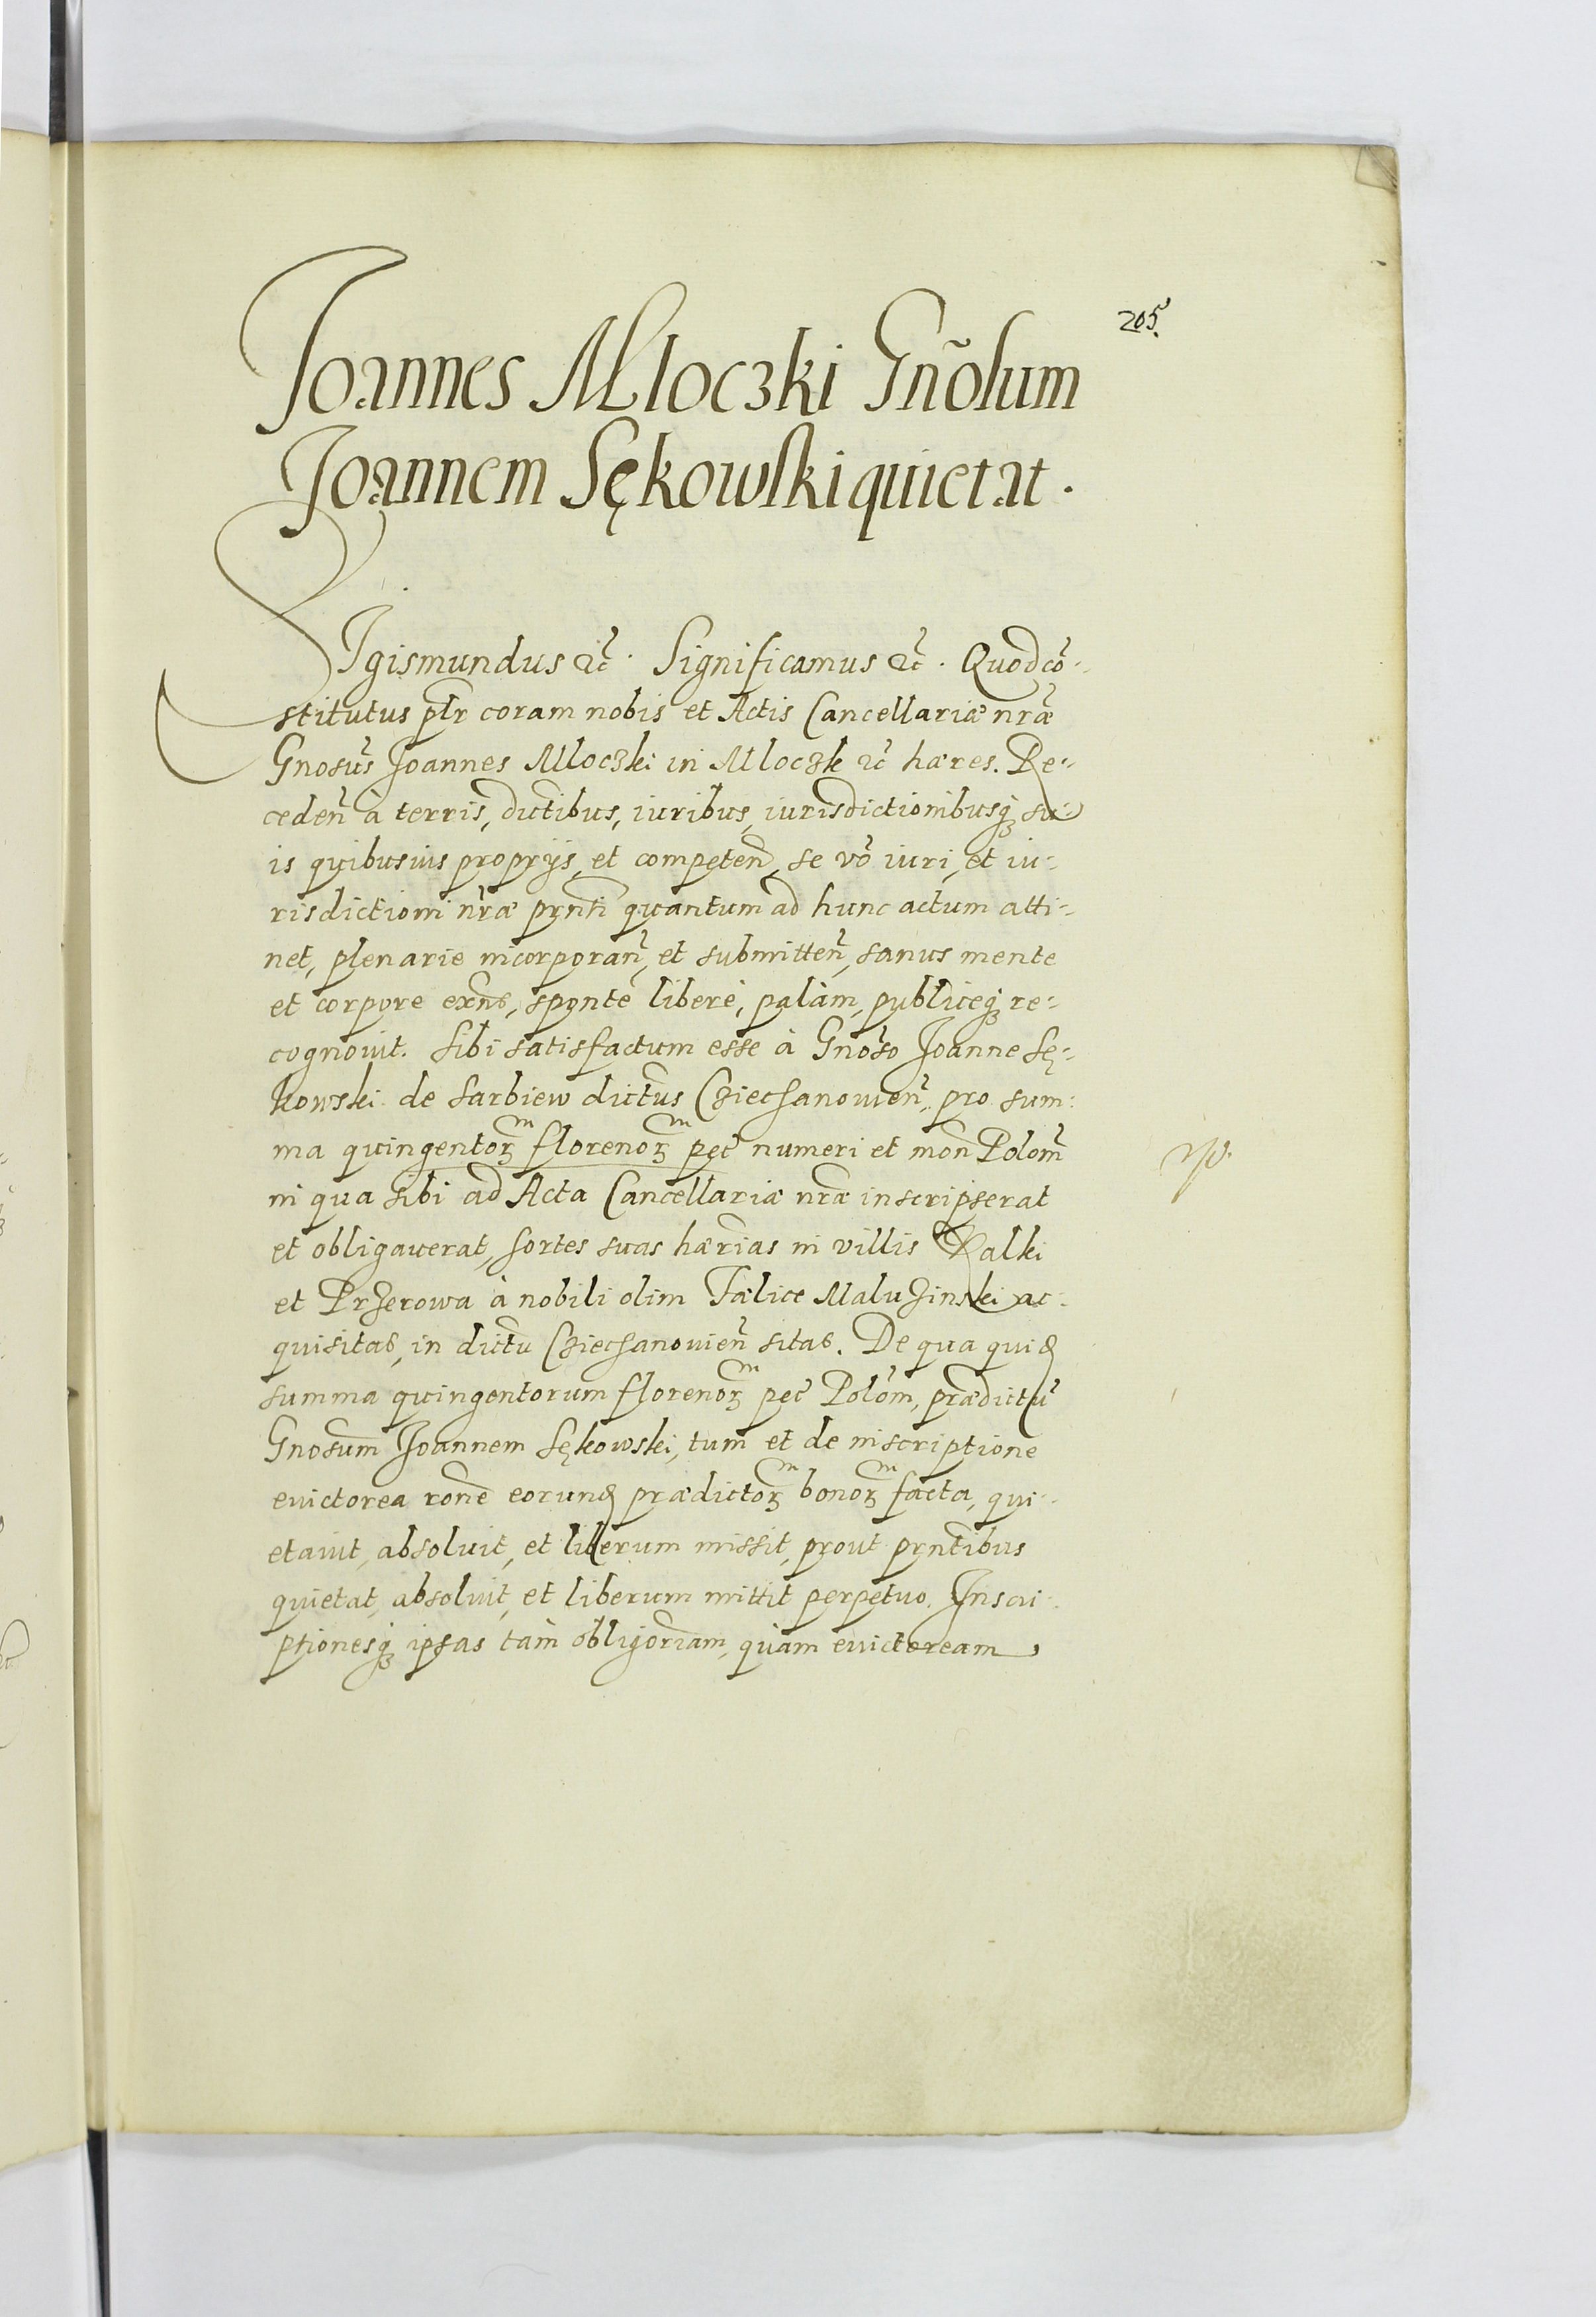 205.
Joannes Mloczki Gñosum
Joannem Sękowski quietat.
Sigismundus etc̃. Significamus etc̃. Quod cõ-
stitutus pt̃lr coram nobis et Actis Cancellariæ nrãe
Gnosus̃ Joannes Mloczki in Mloczk etc̃ hæres. Re-
cedeñ à terris, dictibus, iuribus, iurisdictionibusq₃ su-
is quibusuis proprijs, et competeñ, se võ iuri, et iu-
risdictioni nr̃æ pñti quantum ad hunc actum atti-
net, plenarie incorporañ, et submitteñ, sanus mente
et corpore exñs, sponte liberè, palàm, publiceq₃ re-
cognouit. Sibi satisfactum esse à Gnõso Joanne Sę-
kowski de Sarbiew dictũs Cziechanouieñ, pro sum-
ma quingentor̃m florenor̃m peč numeri et moñ Poloñ
in qua sibi ad Acta Cancellariæ nrãe inscripserat
et obligauerat, sortes suas hærias in villis Kalki
et Przerowa à nobili olim Fælice Maluzinski ac-
quisitas, in dictũ Cziechanouieñ sitas. De qua quid̃
summa quingentorum florenor̃m peč Polõm, prædictũ
Gnosũm Joannem Sękowski, tum et de inscriptione
euictorea rone eorund̃ prædictor̃m bonor̃m facta, qui-
etauit, absoluit, et liberum missit, prout pñtibus
quietat, absoluit, et liberum mittit perpetuo. Inscri-
ptionesq₃ ipsas tàm obligor̃iam, quàm euictoream